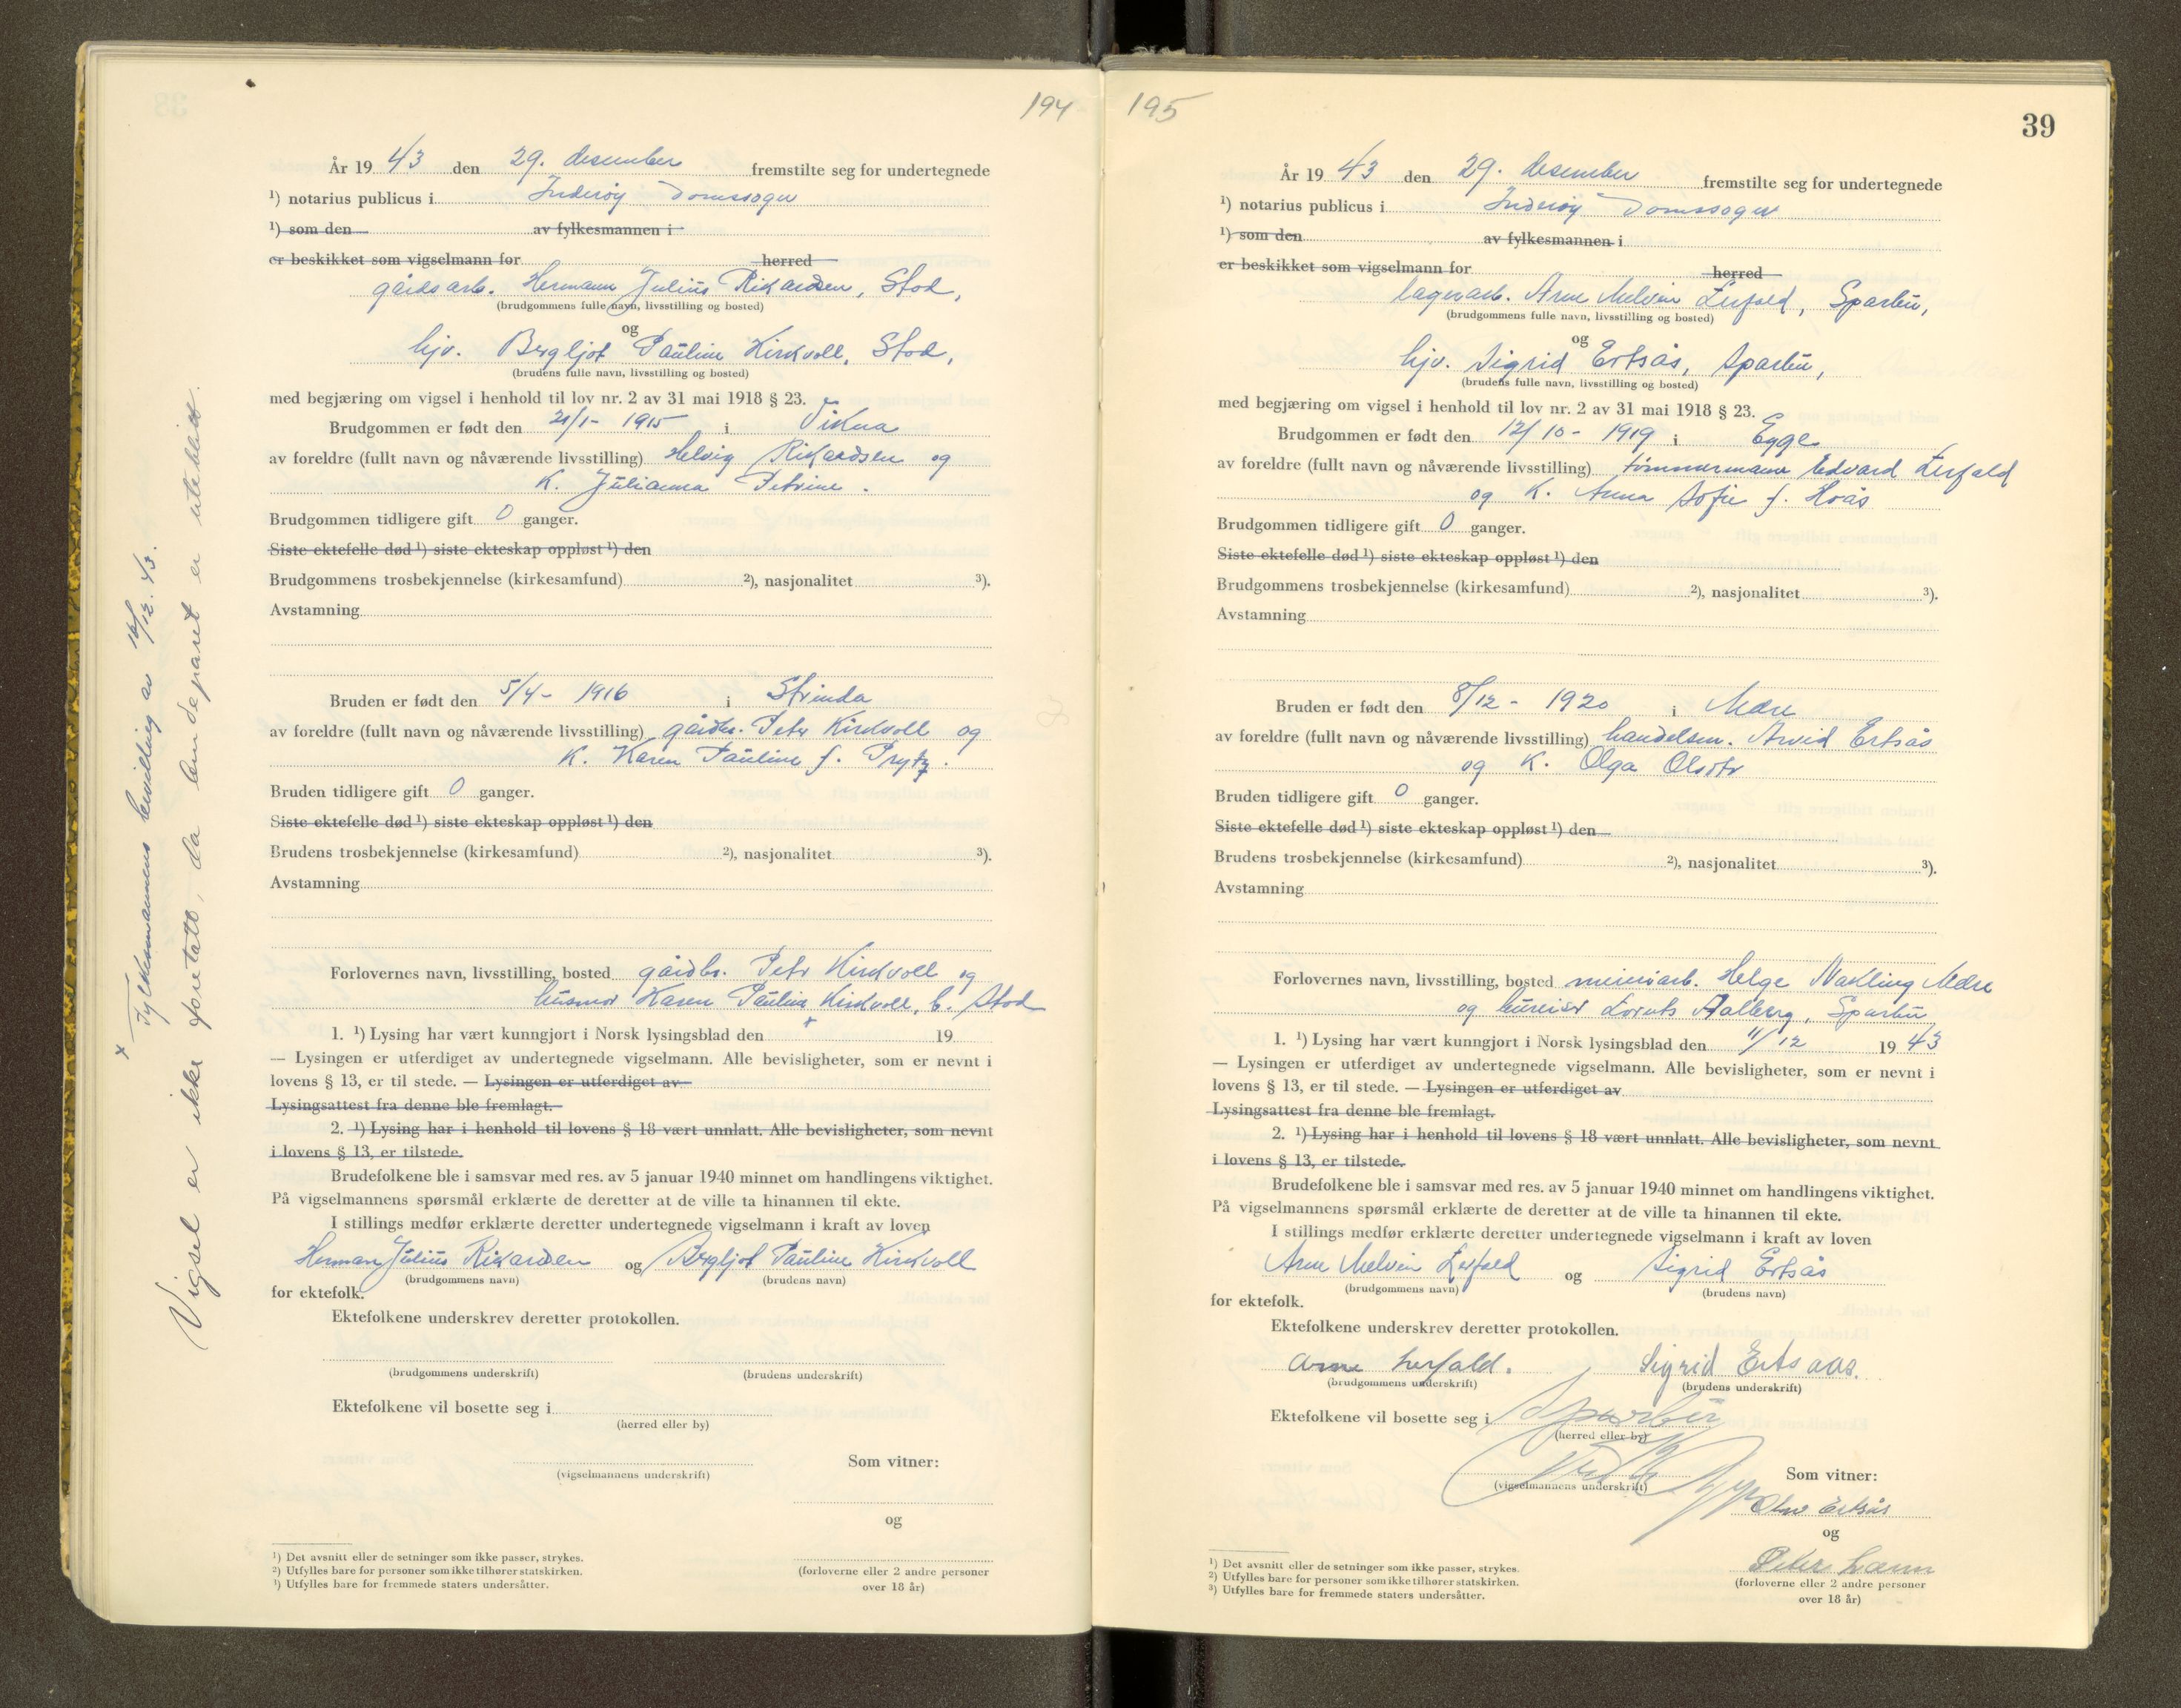 194
År 19 43 den 29. desember fremstilte seg for undertegnede
¹) notarius publicus i Inderøy Domssogn
¹) som den av fylkesmannen i
er beskikket som vigselmann for herred
gårdsarb. Hermann Julius Rikardsen, Stod,
(brudgommens fulle navn, livsstilling og bosted)
og
hjv. Bergljot Pauline Kirkvoll, Stod,
(brudens fulle navn, livsstilling og bosted)
med begjæring om vigsel i henhold til lov nr. 2 av 31 mai 1918 § 23.
Brudgommen er født den 21/1- 1915 i Vikna
av foreldre (fullt navn og nåværende livsstilling) Helvig Rikardsen og
K. Julianna Petrine.
Brudgommen tidligere gift 0 ganger.
Siste ektefelle død ¹) siste ekteskap oppløst ¹) den
Brudgommens trosbekjennelse (kirkesamfund) ²), nasjonalitet ³).
Avstamning
Bruden er født den 5/4- 1916 i Strinda
av foreldre (fullt navn og nåværende livsstilling) gårdbr. Peter Kirkvoll og
K. Karen Pauline f. Prytz.
Bruden tidligere gift 0 ganger.
Siste ektefelle død ¹) siste ekteskap oppløst ¹) den
Brudens trosbekjennelse (kirkesamfund) ²), nasjonalitet ³).
Avstamning
Forlovernes navn, livsstilling, bosted gårdbr. Peter Kirkvoll og
husmor Karen Pauline Kirkvoll, b. Stod
1. ¹) Lysing har vært kunngjort i Norsk lysingsblad den x 19
— Lysingen er utferdiget av undertegnede vigselmann. Alle bevisligheter, som er nevnt i
lovens § 13, er til stede. — Lysingen er utferdiget av
Lysingsattest fra denne ble fremlagt.
2. ¹) Lysing har i henhold til lovens § 18 vært unnlatt. Alle bevisligheter, som nevnt
i lovens § 13, er tilstede.
Brudefolkene ble i samsvar med res. av 5 januar 1940 minnet om handlingens viktighet.
På vigselmannens spørsmål erklærte de deretter at de ville ta hinannen til ekte.
I stillings medfør erklærte deretter undertegnede vigselmann i kraft av loven
Herman Julius Rikardsen og Bergljot Pauline Kirkvoll
(brudgommens navn) (brudens navn)
for ektefolk.
Ektefolkene underskrev deretter protokollen.
(brudgommens underskrift) (brudens underskrift)
Ektefolkene vil bosette seg i
(herred eller by)
Som vitner:
(vigselmannens underskrift)
og
(forloverne eller 2 andre personer
over 18 år)
¹) Det avsnitt eller de setninger som ikke passer, strykes.
²) Utfylles bare for personer som ikke tilhører statskirken.
³) Utfylles bare for fremmede staters undersåtter.
x Fylkesmannens bevilling av 16/12.43.
Vigsel er ikke foretatt, da brudeparet er uteblitt.
195
39
År 19 43 den 29. desember fremstilte seg for undertegnede
¹) notarius publicus i Inderøy Domssogn
¹) som den av fylkesmannen i
er beskikket som vigselmann for herred
lagerarb. Arne Melvin Lerfald, Sparbu,
(brudgommens fulle navn, livsstilling og bosted)
og
hjv. Sigrid Ertsås, Sparbu,
(brudens fulle navn, livsstilling og bosted)
med begjæring om vigsel i henhold til lov nr. 2 av 31 mai 1918 § 23.
Brudgommen er født den 12/10- 1919 i Egge
av foreldre (fullt navn og nåværende livsstilling) tømmermann Edvard Lerfald
og K. Anna Sofie f. Hoås
Brudgommen tidligere gift 0 ganger.
Siste ektefelle død ¹) siste ekteskap oppløst ¹) den
Brudgommens trosbekjennelse (kirkesamfund) ²), nasjonalitet ³).
Avstamning
Bruden er født den 8/12- 1920 i Mære
av foreldre (fullt navn og nåværende livsstilling) handelsm. Arvid Ertsås
og K. Olga
Bruden tidligere gift 0 ganger.
Siste ektefelle død ¹) siste ekteskap oppløst ¹) den
Brudens trosbekjennelse (kirkesamfund) ²), nasjonalitet ³).
Avstamning
Forlovernes navn, livsstilling, bosted Helge Mære
og Aalberg, Sparbu
1. ¹) Lysing har vært kunngjort i Norsk lysingsblad den 11/12 19 43
— Lysingen er utferdiget av undertegnede vigselmann. Alle bevisligheter, som er nevnt i
lovens § 13, er til stede. — Lysingen er utferdiget av
Lysingsattest fra denne ble fremlagt.
2. ¹) Lysing har i henhold til lovens § 18 vært unnlatt. Alle bevisligheter, som nevnt
i lovens § 13, er tilstede.
Brudefolkene ble i samsvar med res. av 5 januar 1940 minnet om handlingens viktighet.
På vigselmannens spørsmål erklærte de deretter at de ville ta hinannen til ekte.
I stillings medfør erklærte deretter undertegnede vigselmann i kraft av loven
Arne Melvin Lerfald og Sigrid Ertsås
(brudgommens navn) (brudens navn)
for ektefolk.
Ektefolkene underskrev deretter protokollen.
Arne Lerfald. Sigrid Ertsaas.
(brudgommens underskrift) (brudens underskrift)
Ektefolkene vil bosette seg i Sparbu
(herred eller by)
Som vitner:
(vigselmannens underskrift)
Ertsås
og
Peter
(forloverne eller 2 andre personer
over 18 år)
¹) Det avsnitt eller de setninger som ikke passer, strykes.
²) Utfylles bare for personer som ikke tilhører statskirken.
³) Utfylles bare for fremmede staters undersåtter.